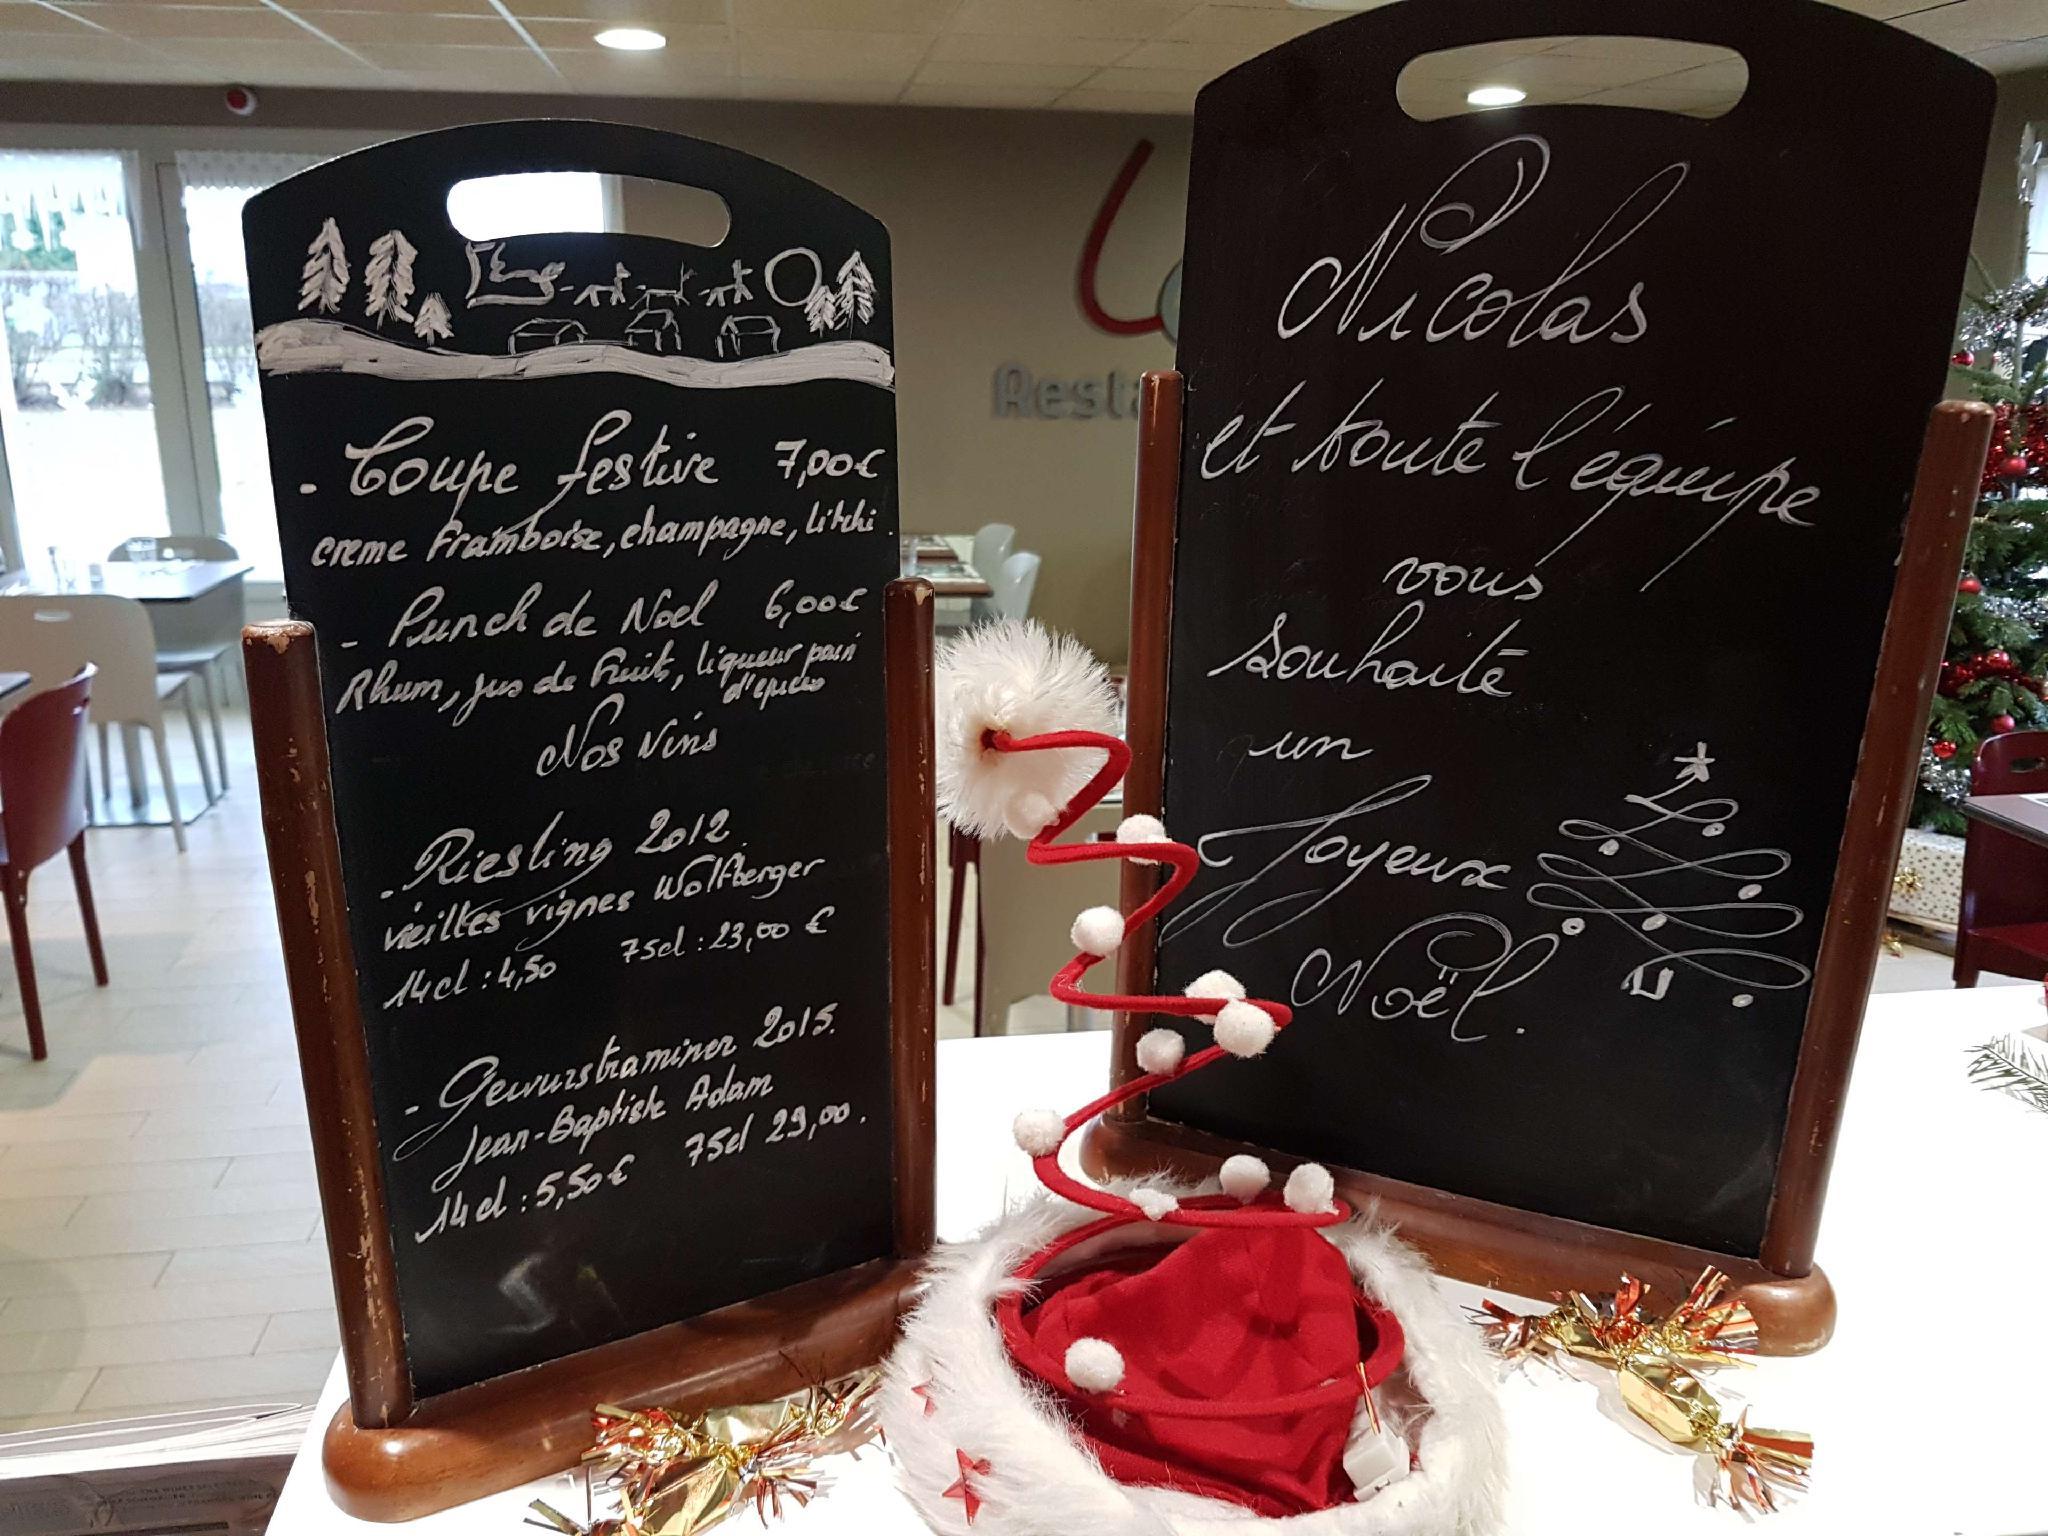 - Coupe festive 7,00€
creme Framboise, champagne, litchi.
- Punch de Noel 6,00€
Rhum, jus de fruits, liqueur pain
d'epices
Nos vins
- Riesling 2012
vieilles vignes Wolfberger
14cl : 4,50 75cl : 23,00 €
- Gewurstraminer 2015.
Jean-Baptiste Adam
14cl : 5,50€ 75cl 29,00.
Nicolas
et toute l'équipe
vous
souhaite
un
Joyeux
Noël.